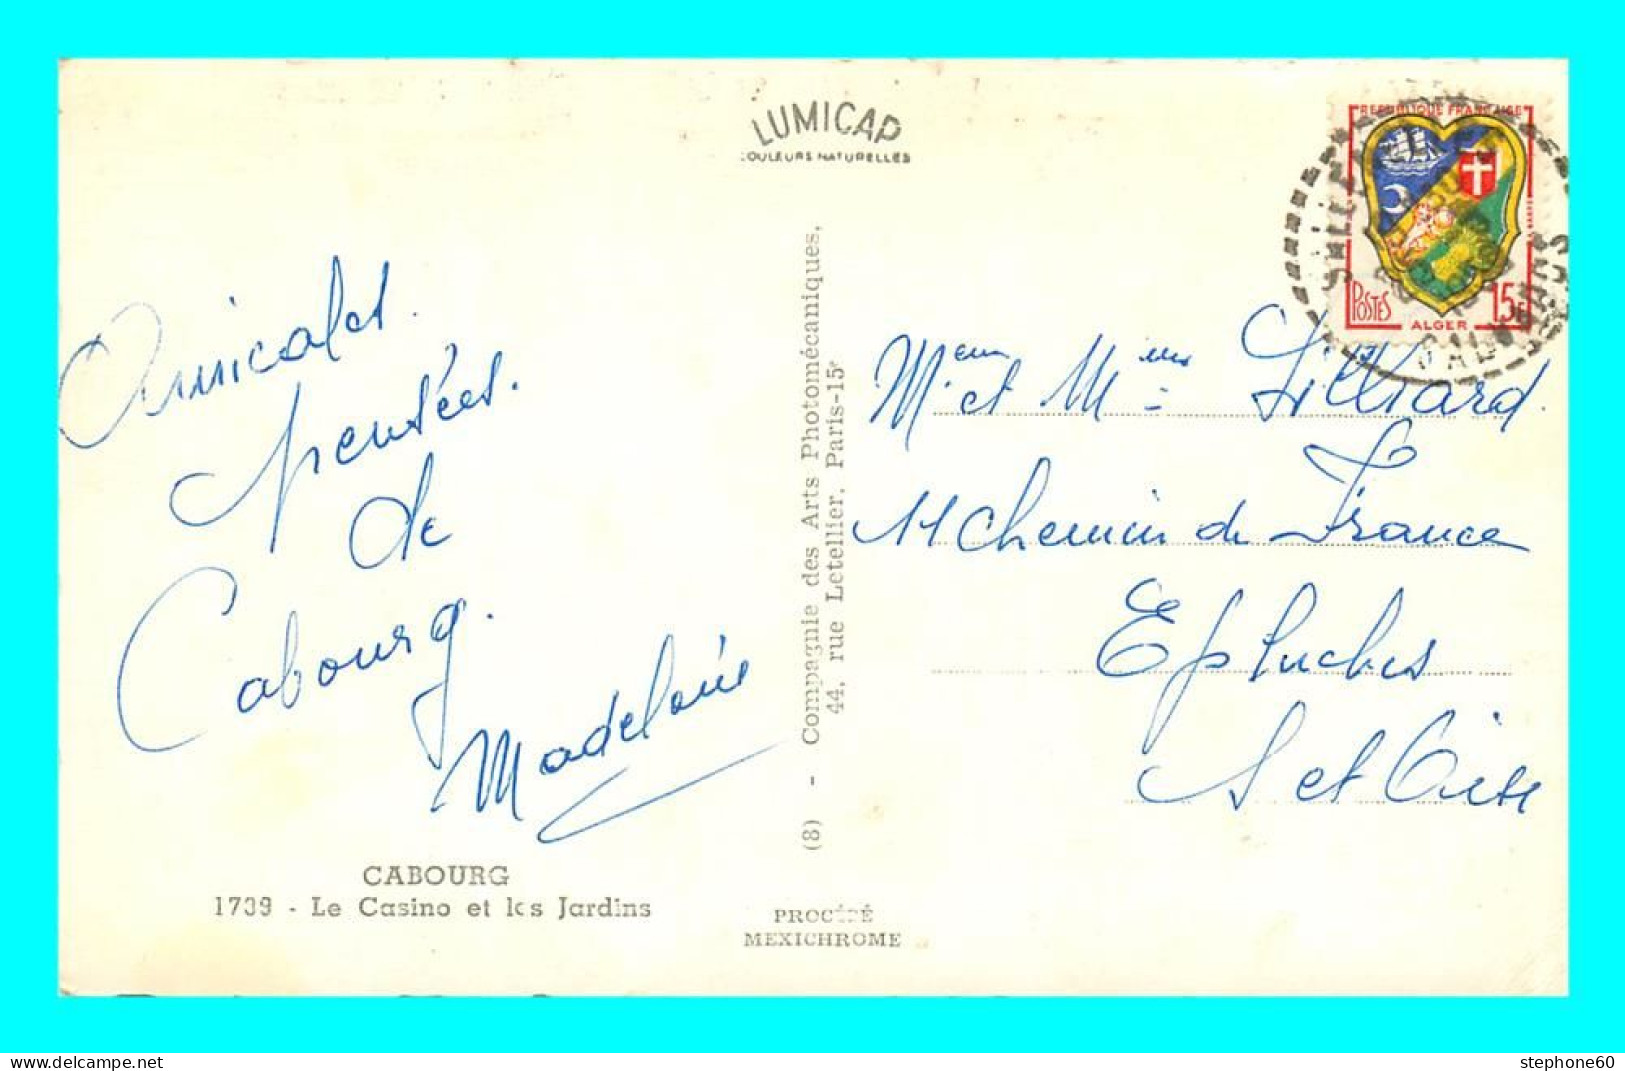 LUMICAP
COULEURS NATURELLES
REPUBLIQUE FRANÇAISE
POSTES
15F
ALGER
CALVADOS
Amicales
pensées.
de
Cabourg.
Madeleine
M. et M
11 Chemin de France
Epluches
S et Oise
(8) - Compagnie des Arts Photomécaniques,
44, rue Letellier, Paris-15e
CABOURG
1739 - Le Casino et les Jardins
PROCÉDÉ
MEXICHROME
https://www.delcampe.net
stephone60